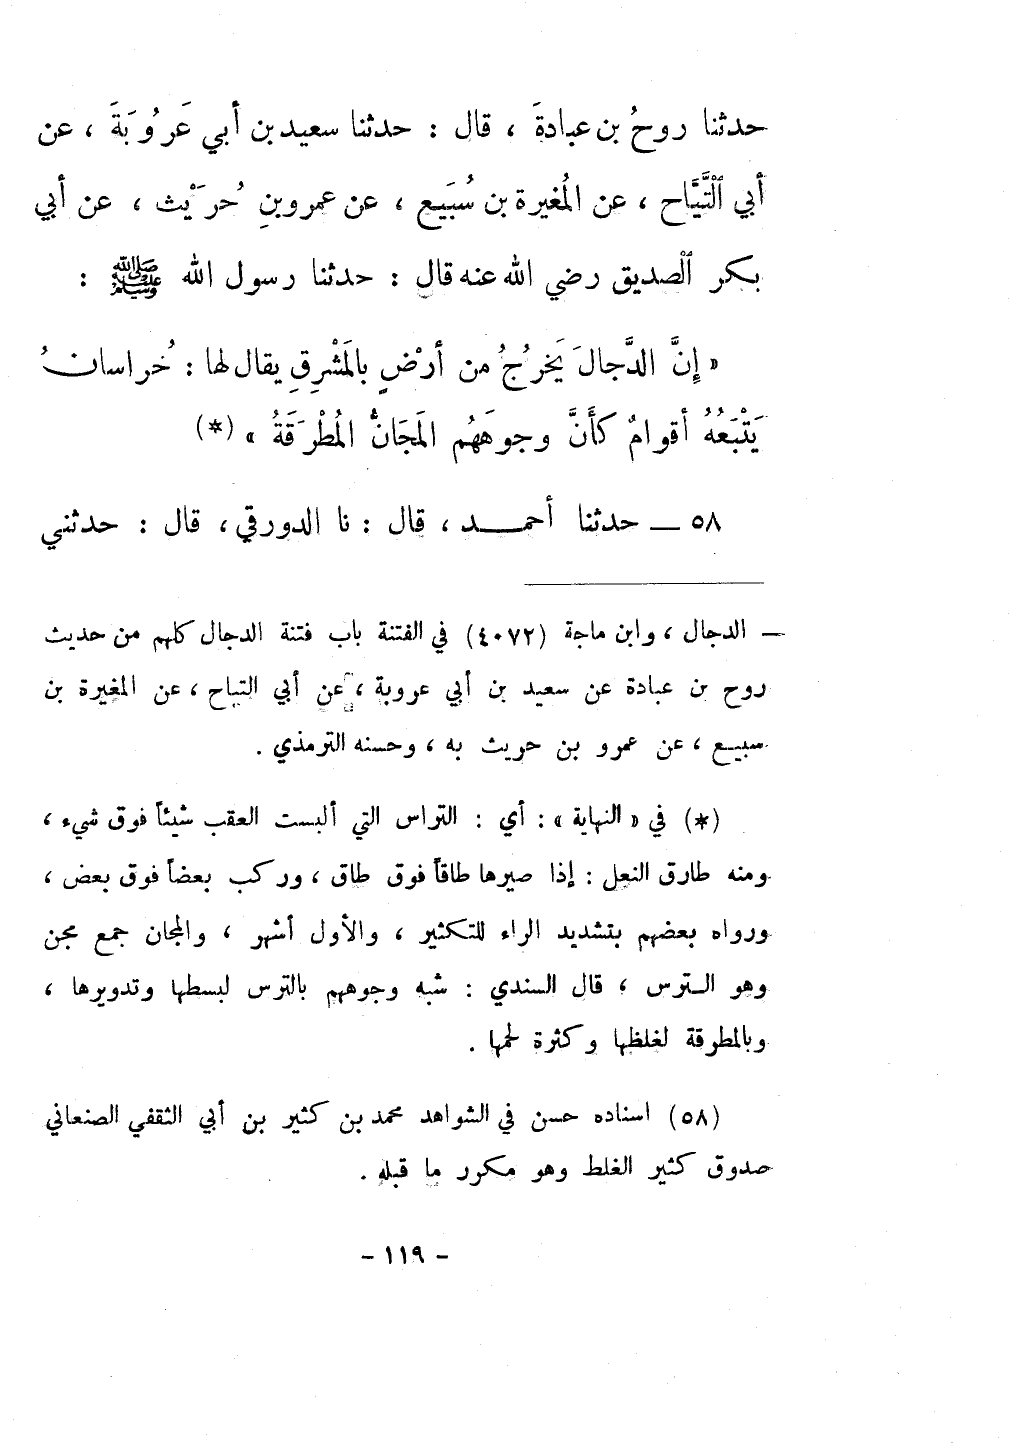 حدثنا روحُ بن عبادةَ ، قال : حدثنا سعيد بن أبي عَرُوبَةَ ، عن
أبي ٱلْتَّيَّاح ، عن المُغيرة بن سُبَيع ، عن عمروبنِ حُرَيْث ، عن أبي
بكر ٱلصديق رضي الله عنه قال : حدثنا رسول الله ﷺ :
« إِنَّ الدَّجالَ يَخرُجُ من أرْضٍ بالمَشْرِقِ يقال لها : خُراسانُ
يَتْبَعُهُ أقوامٌ كأَنَّ وجوهَهُم المَجَانُّ المُطْرَقَةُ » (*)
٥٨ ــ حدثنا أحمـــد ، قال : نا الدورقي ، قال : حدثني
ــ الدجال ، وابن ماجة (٤٠٧٢) في الفتنة باب فتنة الدجال كلهم من حديث
روح بن عبادة عن سعيد بن أبي عروبة ، عن أبي التياح ، عن المغيرة بن
سبيـع ، عن عمرو بن حريث به ، وحسنه الترمذي .
(*) في « النهاية » : أي : التراس التي ألبست العقب شيئاً فوق شيء ،
ومنه طارق النعل : إذا صيرها طاقاً فوق طاق ، وركب بعضاً فوق بعض ،
ورواه بعضهم بتشديد الراء للتكثير ، والأول أشهر ، والمجان جمع مجن
وهو الـترس ، قال السندي : شبه وجوههم بالترس لبسطها وتدويرها ،
وبالمطرقة لغلظها وكثرة لحمها .
(٥٨) اسناده حسن في الشواهد محمد بن كثير بن أبي الثقفي الصنعاني
صدوق كثير الغلط وهو مكرر ما قبله .
- ١١٩ -